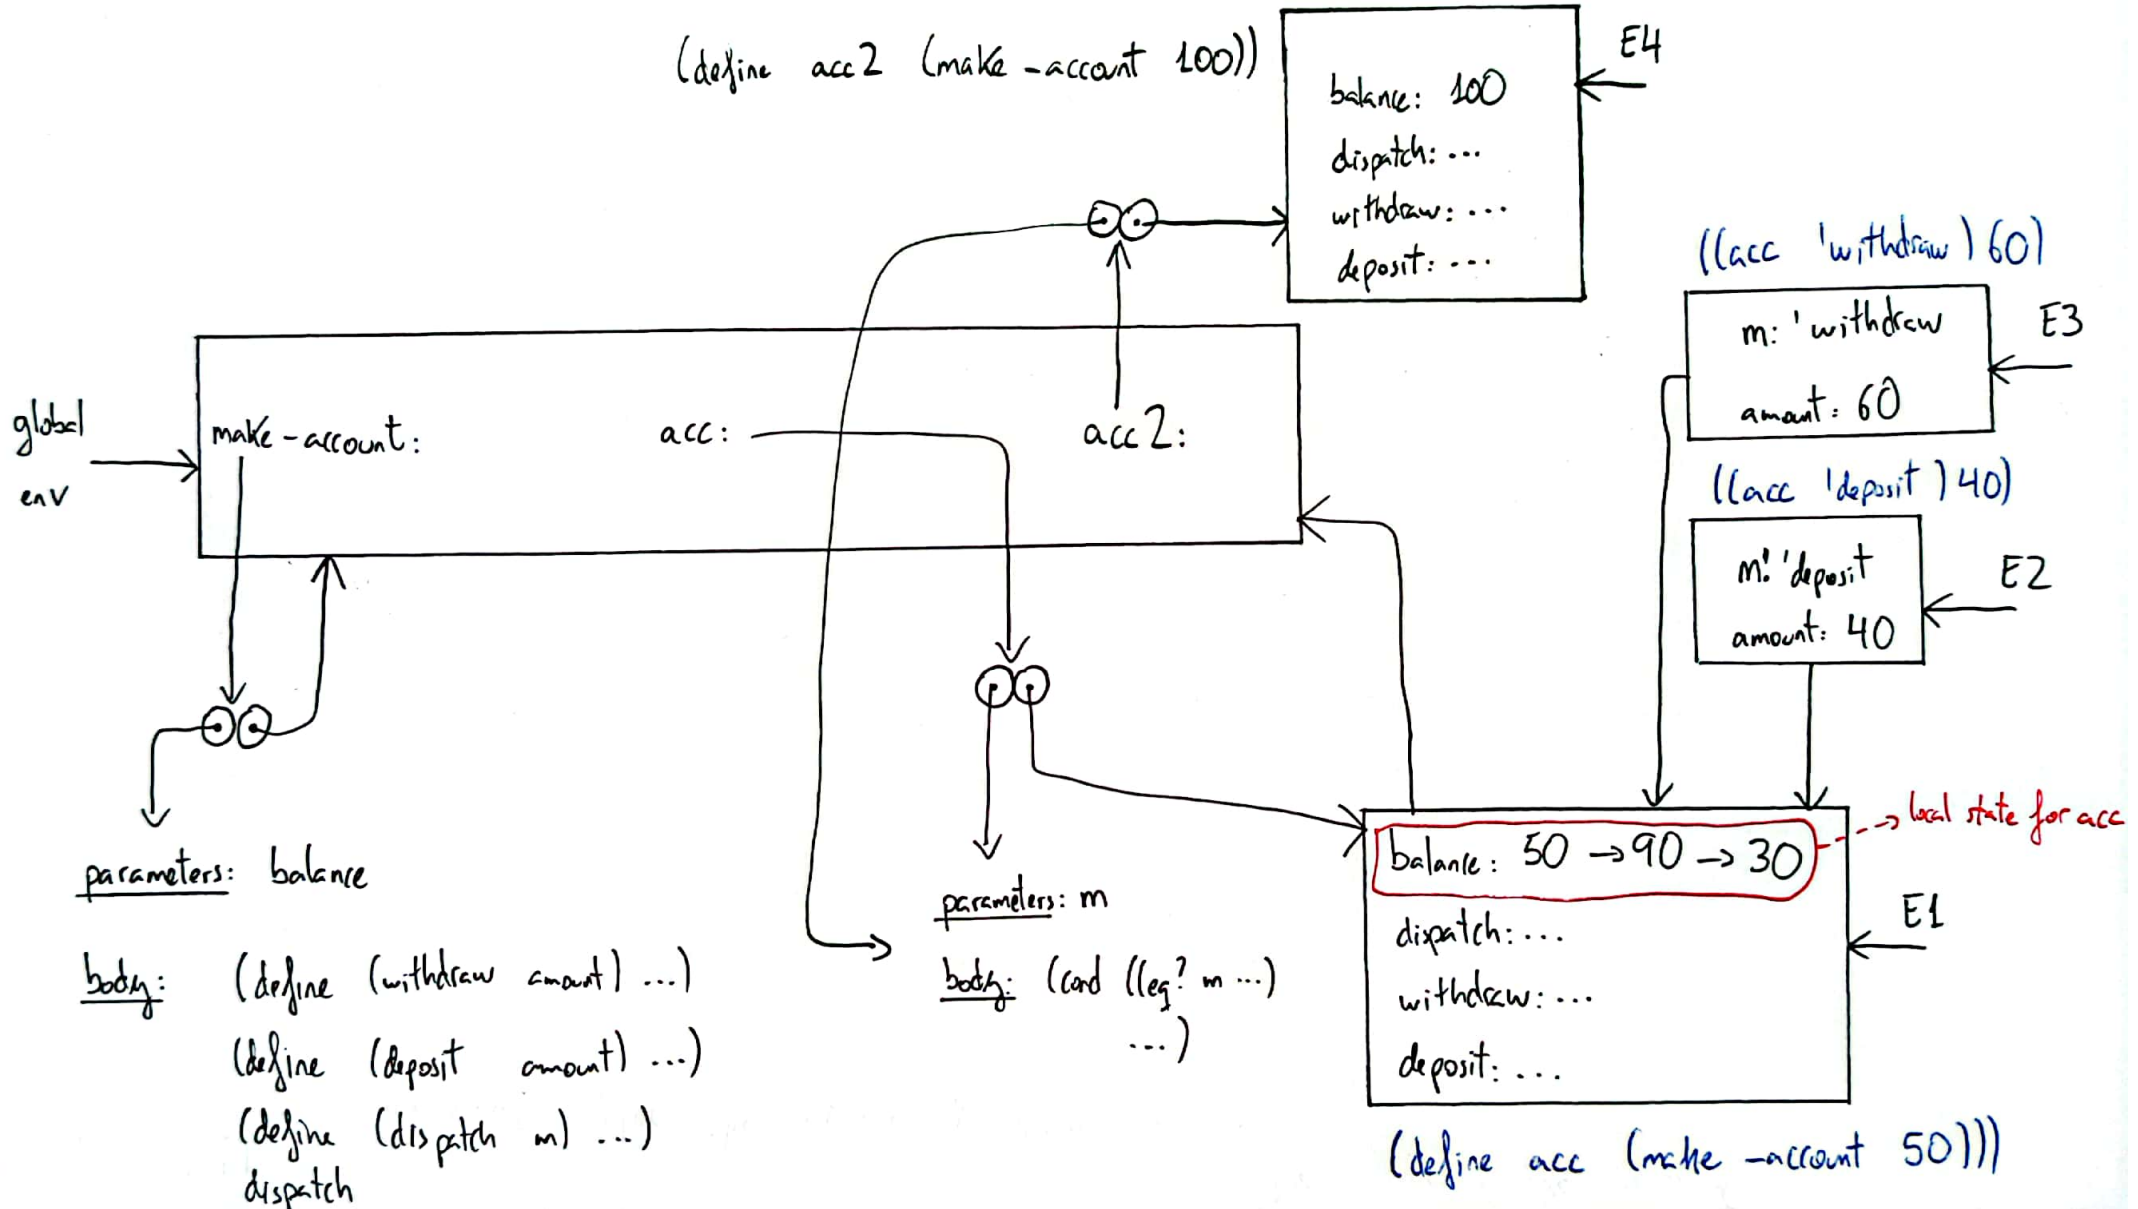 (define acc2 (make-account 100))
E4
balance: 100
dispatch: ...
withdraw: ...
deposit: ...
((acc 'withdraw) 60)
m: 'withdraw
amount: 60
E3
global
env
make-account:
acc:
acc2:
((acc 'deposit) 40)
m: 'deposit
amount: 40
E2
parameters: balance
body: (define (withdraw amount) ...)
(define (deposit amount) ...)
(define (dispatch m) ...)
dispatch
parameters: m
body: (cond ((eq? m ...)
...)
balance: 50 → 90 → 30
local state for acc
dispatch: ...
withdraw: ...
deposit: ...
E1
(define acc (make-account 50)))